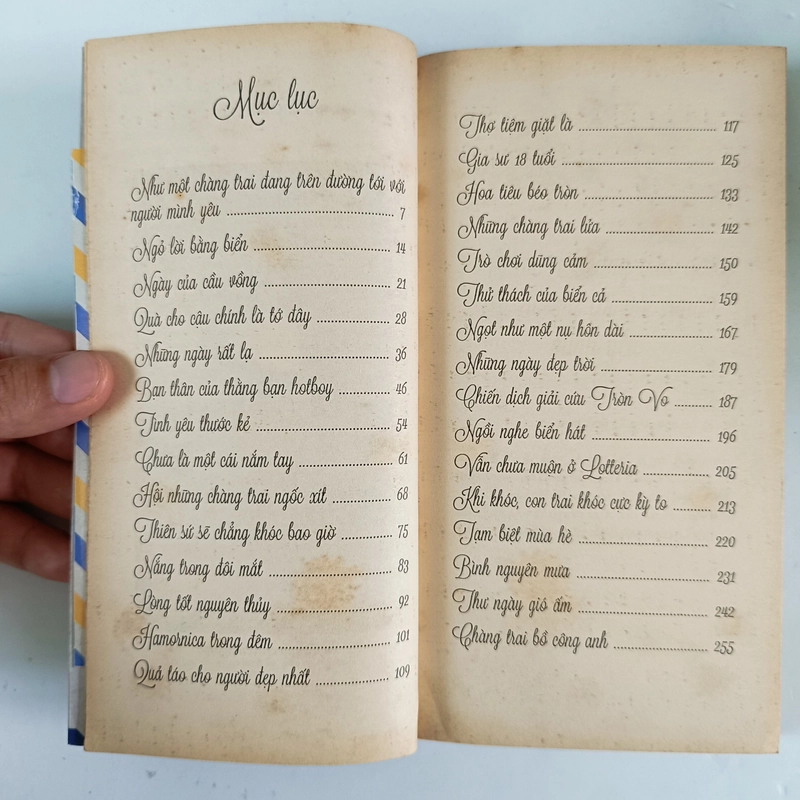 Mục lục
Như một chàng trai đang trên đường tới với
người mình yêu ........ 7
Ngỏ lời bằng biển ........ 14
Ngày của cầu vồng ........ 21
Quà cho cậu chính là tớ đây ........ 28
Những ngày rất lạ ........ 36
Bạn thân của thằng bạn hotboy ........ 46
Tình yêu thước kẻ ........ 54
Chưa là một cái nắm tay ........ 61
Hội những chàng trai ngốc xít ........ 68
Thiên sứ sẽ chẳng khóc bao giờ ........ 75
Nắng trong đôi mắt ........ 83
Lòng tốt nguyên thủy ........ 92
Hamornica trong đêm ........ 101
Quả táo cho người đẹp nhất ........ 109
Thợ tiệm giặt là ........ 117
Gia sư 18 tuổi ........ 125
Hoa tiêu béo tròn ........ 133
Những chàng trai lửa ........ 142
Trò chơi dũng cảm ........ 150
Thử thách của biển cả ........ 159
Ngọt như một nụ hôn dài ........ 167
Những ngày đẹp trời ........ 179
Chiến dịch giải cứu Tròn Vo ........ 187
Ngồi nghe biển hát ........ 196
Vẫn chưa muộn ở Lotteria ........ 205
Khi khóc, con trai khóc cực kỳ to ........ 213
Tạm biệt mùa hè ........ 220
Bình nguyên mưa ........ 231
Thư ngày gió ấm ........ 242
Chàng trai bồ công anh ........ 255